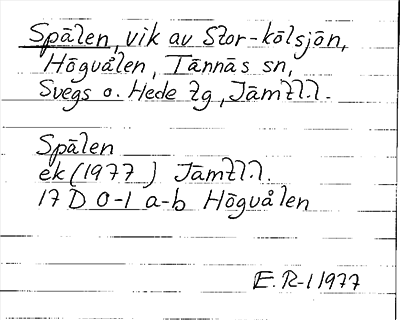 Spålen, vik av Stor-kölsjön,
Högvålen, Tännäs sn,
Svegs o. Hede tg, Jämtl.l.
Spålen
ek (1977) Jämtl.l.
17 D 0-1 a-b Högvålen
E. R-l 1977